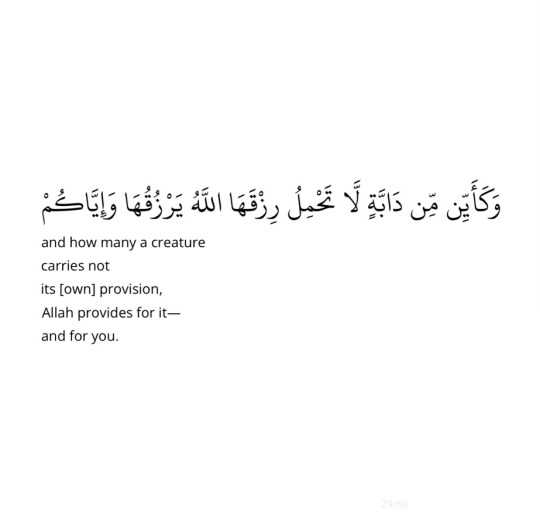 وَكَأَيِّن مِّن دَابَّةٍ لَّا تَحْمِلُ رِزْقَهَا اللَّهُ يَرْزُقُهَا وَإِيَّاكُمْ
and how many a creature
carries not
its [own] provision,
Allah provides for it—
and for you.
29:60